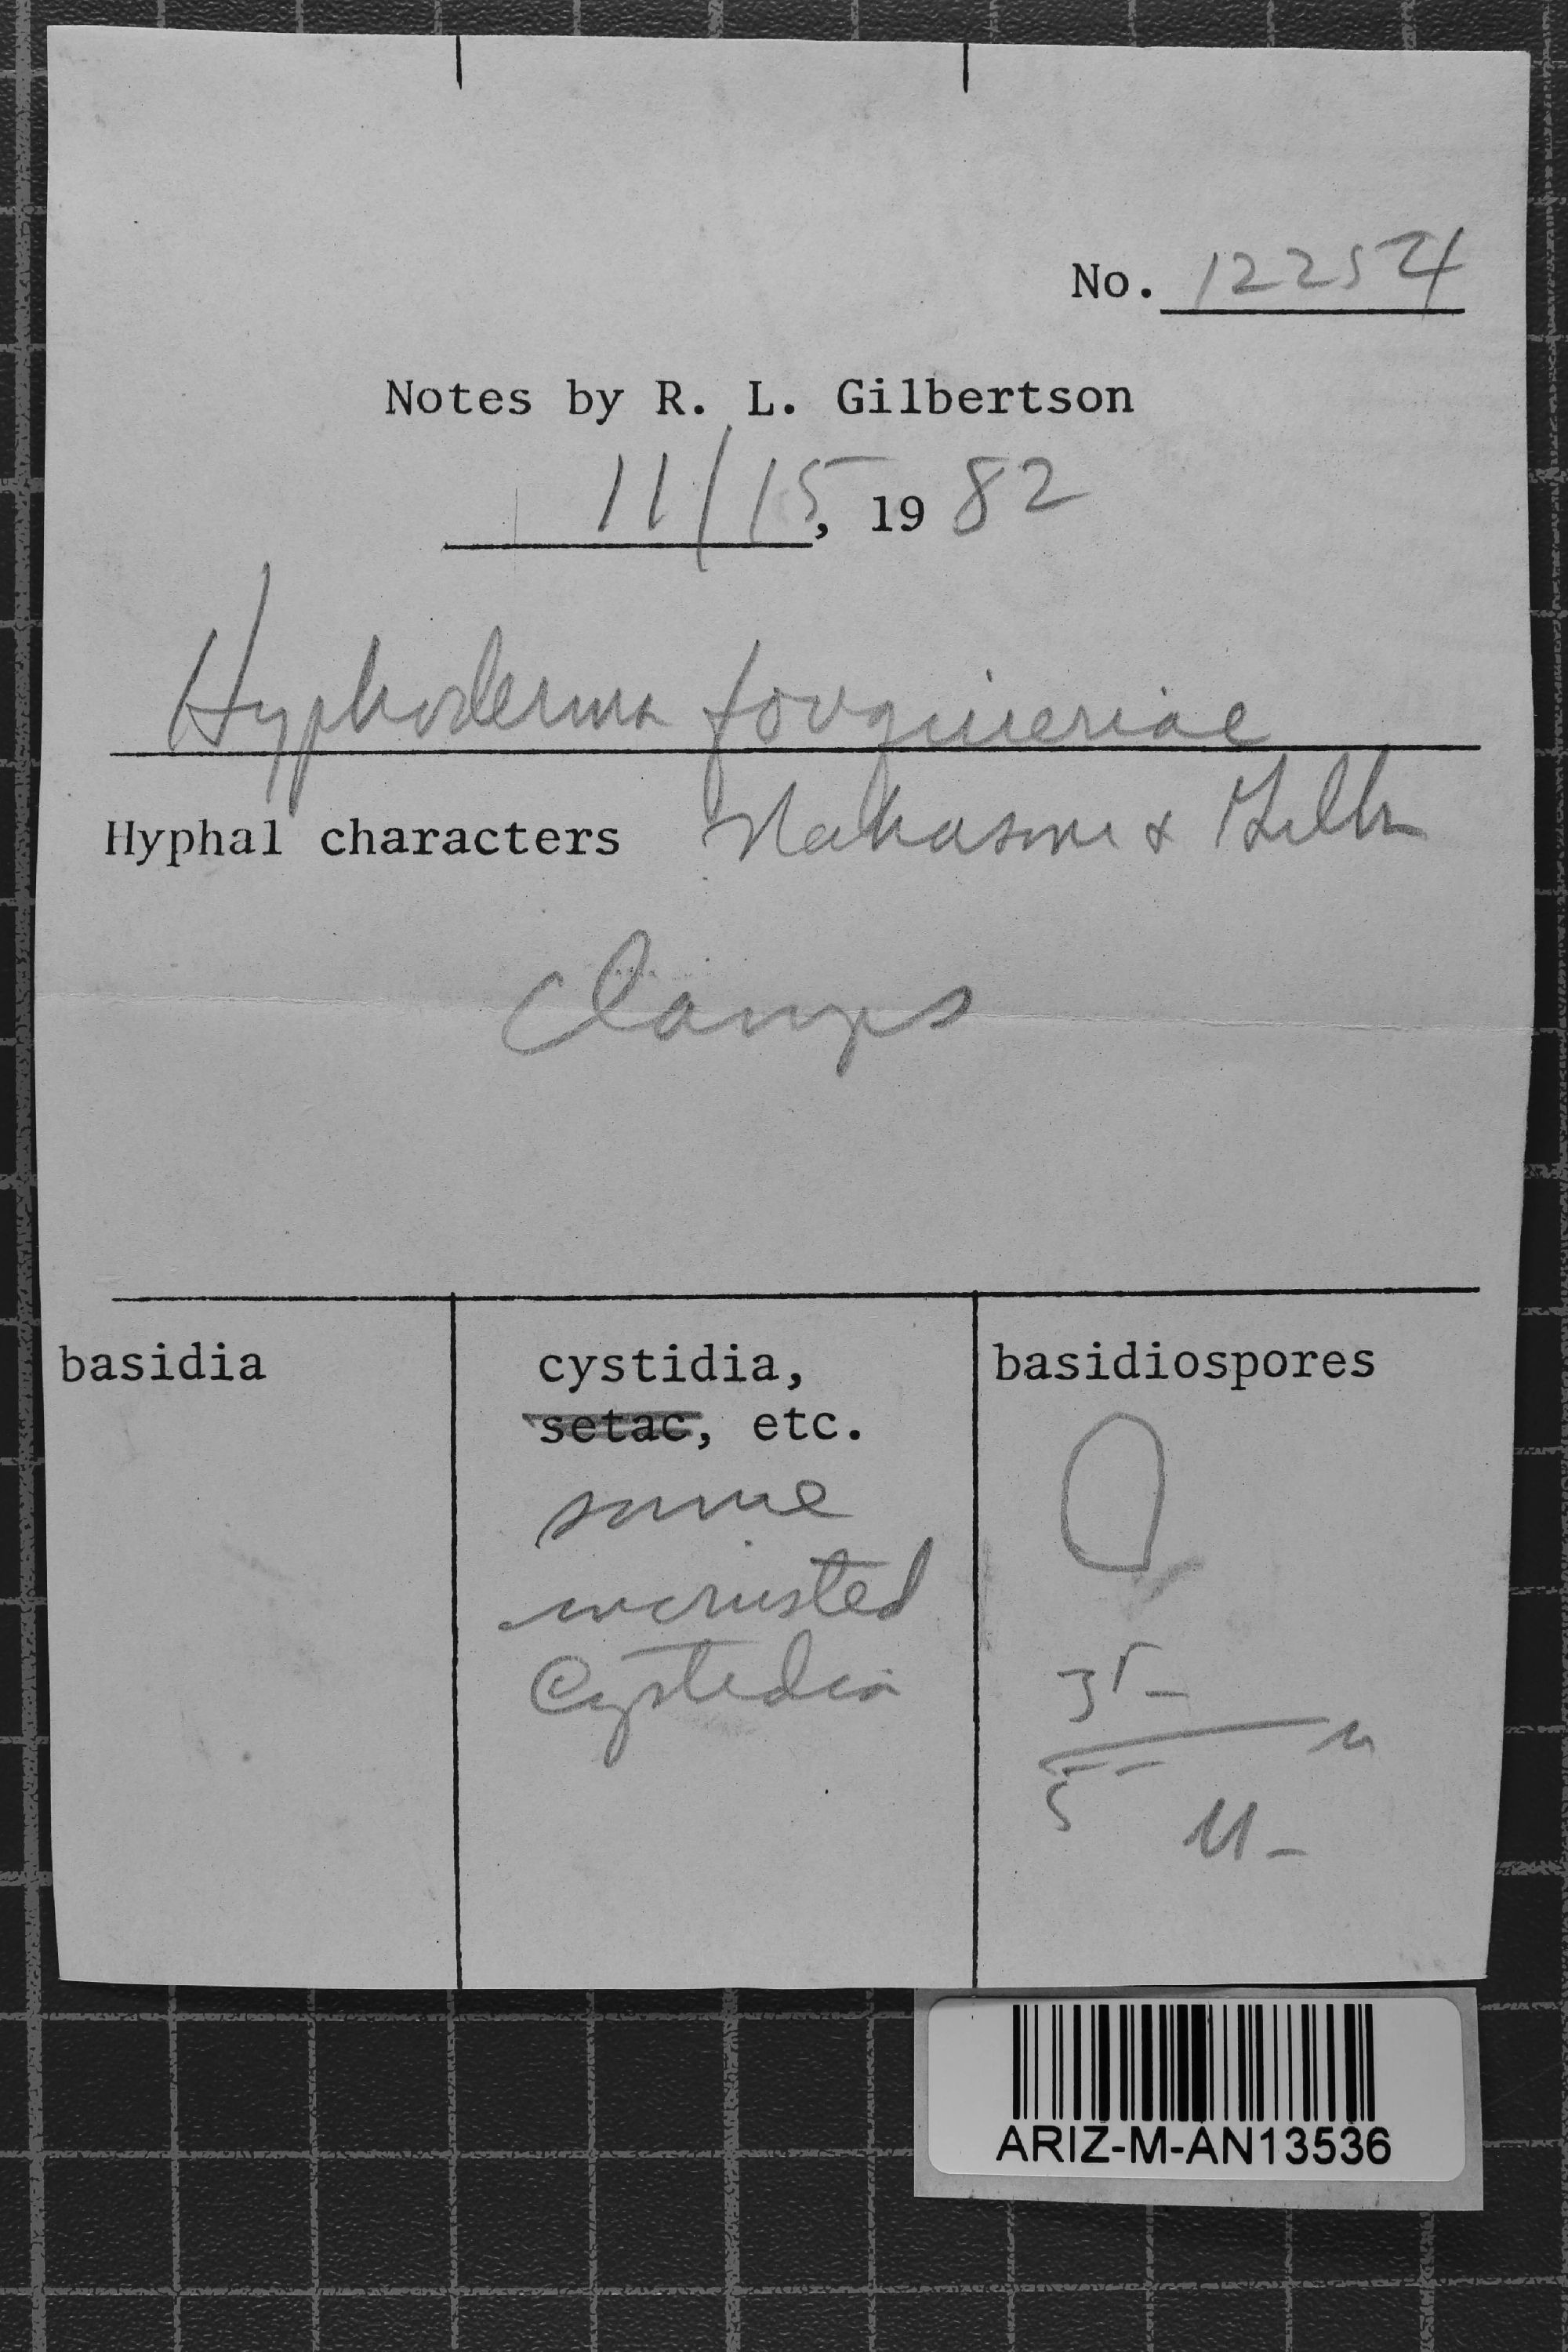 No. 12254
Notes by R. L. Gilbertson
11/15, 1982
Hyphoderma fouquieriae
Hyphal characters Nakasone & Gilbn
Clamps
basidia
cystidia,
setae, etc.
some
incrusted
Cystidia
basidiospores
ARIZ-M-AN13536